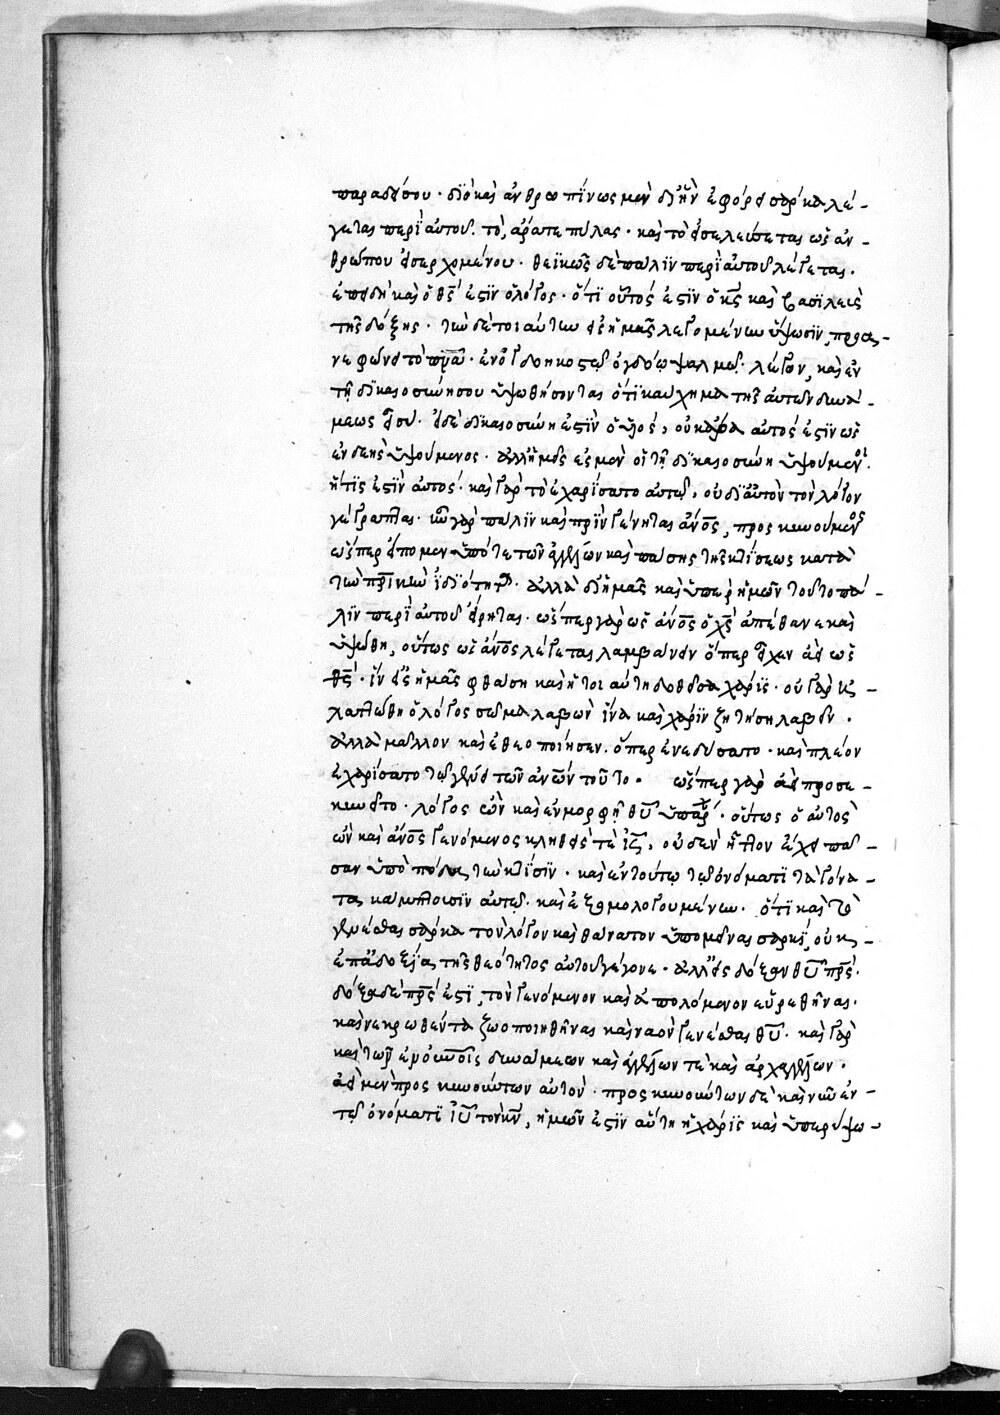 παραδείσου· διὸ καὶ ἀνθρωπίνως μὲν δι' ἣν ἐφόρει σάρκα λέ-
γεται περὶ αὐτοῦ. τὸ, ἄρατε πύλας· καὶ τὸ εἰσελεύσεται ὡς ἀν-
θρώπου εἰσερχομένου· θεϊκῶς δὲ πάλιν περὶ αὐτοῦ λέγεται.
ἐπειδὴ καὶ ὁ θς ἐστὶν ὁ λόγος· ὅτι οὗτός ἐστιν ὁ κς καὶ βασιλεὺς
τῆς δόξης· τὴν δὲ τοιαύτην εἰς ἡμᾶς λεγομένην ὕψωσιν, προα-
νεφώνει τὸ πνα· ἐν ὀγδοηκοστῷ ὀγδόῳ ψαλμῷ· λέγον, καὶ ἐν
τῇ δικαιοσύνῃ σου ὑψωθήσονται ὅτι καύχημα τῆς αὐτῶν δυνά-
μεως εἶ σύ· εἰ δὲ δικαιοσύνη ἐστὶν ὁ υἱός, οὐκ ἄρα αὐτός ἐστιν ὡς
ἐνδεὴς ὑψούμενος· ἀλλ' ἡμεῖς ἐσμὲν οἱ τῇ δικαιοσύνῃ ὑψούμενοι.
ἥτις ἐστὶν αὐτός· καὶ γὰρ τὸ ἐχαρίσατο αὐτῷ, οὐ δι' αὐτὸν τὸν λόγον
γέγραπται· ἦν γὰρ πάλιν καὶ πρὶν γένηται ἄνος, προσκυνούμενος
ὥσπερ εἴπομεν ὑπό τε τῶν ἀγγέλων καὶ πάσης τῆς κτίσεως κατὰ
τὴν πρικὴν ἰδιότητα· ἀλλὰ δι' ἡμᾶς καὶ ὑπὲρ ἡμῶν τοῦτο πά-
λιν περὶ αὐτοῦ εἴρηται· ὥσπερ γὰρ ὡς ἄνος ὁ χς ἀπέθανε καὶ
ὑψώθη, οὕτως ὡς ἄνος λέγεται λαμβάνειν ὅπερ εἶχεν ἀεὶ ὡς
θς· ἵν' εἰς ἡμᾶς φθάσῃ καὶ ἡ τοιαύτη δοθεῖσα χάρις· οὐ γὰρ ἠ-
λαττώθη ὁ λόγος σῶμα λαβὼν ἵνα καὶ χάριν ζητήσῃ λαβεῖν·
ἀλλὰ μᾶλλον καὶ ἐθεοποίησεν ὅπερ ἐνεδύσατο· καὶ πλέον
ἐχαρίσατο τῷ γένει τῶν ἀνων τοῦτο· ὥσπερ γὰρ ἀεὶ προσε-
κυνεῖτο· λόγος ὢν καὶ ἐν μορφῇ θυ ὑπάρχων· οὕτως ὁ αὐτὸς
ὢν καὶ ἄνος γενόμενος κληθείς τε ις, οὐδὲν ἧττον ἔχει πᾶ-
σαν ὑπὸ πόδας τὴν κτίσιν· καὶ ἐν τούτῳ τῷ ὀνόματι τὰ γόνα-
τα κάμπτουσιν αὐτῷ· καὶ ἐξομολογουμένην· ὅτι καὶ τὸ
γενέσθαι σάρκα τὸν λόγον καὶ θάνατον ὑπομεῖναι σαρκί, οὐκ
ἐπ' ἀδοξίᾳ τῆς θεότητος αὐτοῦ γέγονε· ἀλλ' εἰς δόξαν θυ πρς·
δόξα δὲ πρς ἐστὶ, τὸν γενόμενον καὶ ἀπολόμενον εὑρεθῆναι·
καὶ νεκρωθέντα ζωοποιηθῆναι καὶ ναὸν γενέσθαι θυ· καὶ γὰρ
καὶ τῶν ἐν οὐνοῖς δυνάμεων καὶ ἀγγέλων τὲ καὶ ἀρχαγγέλων·
ἀεὶ μὲν προσκυνούντων αὐτὸν· προσκυνούντων δὲ καὶ νῦν ἐν
τῷ ὀνόματι ιυ τὸν κν, ἡμῶν ἐστὶν αὕτη ἡ χάρις καὶ ὑπερύψω-